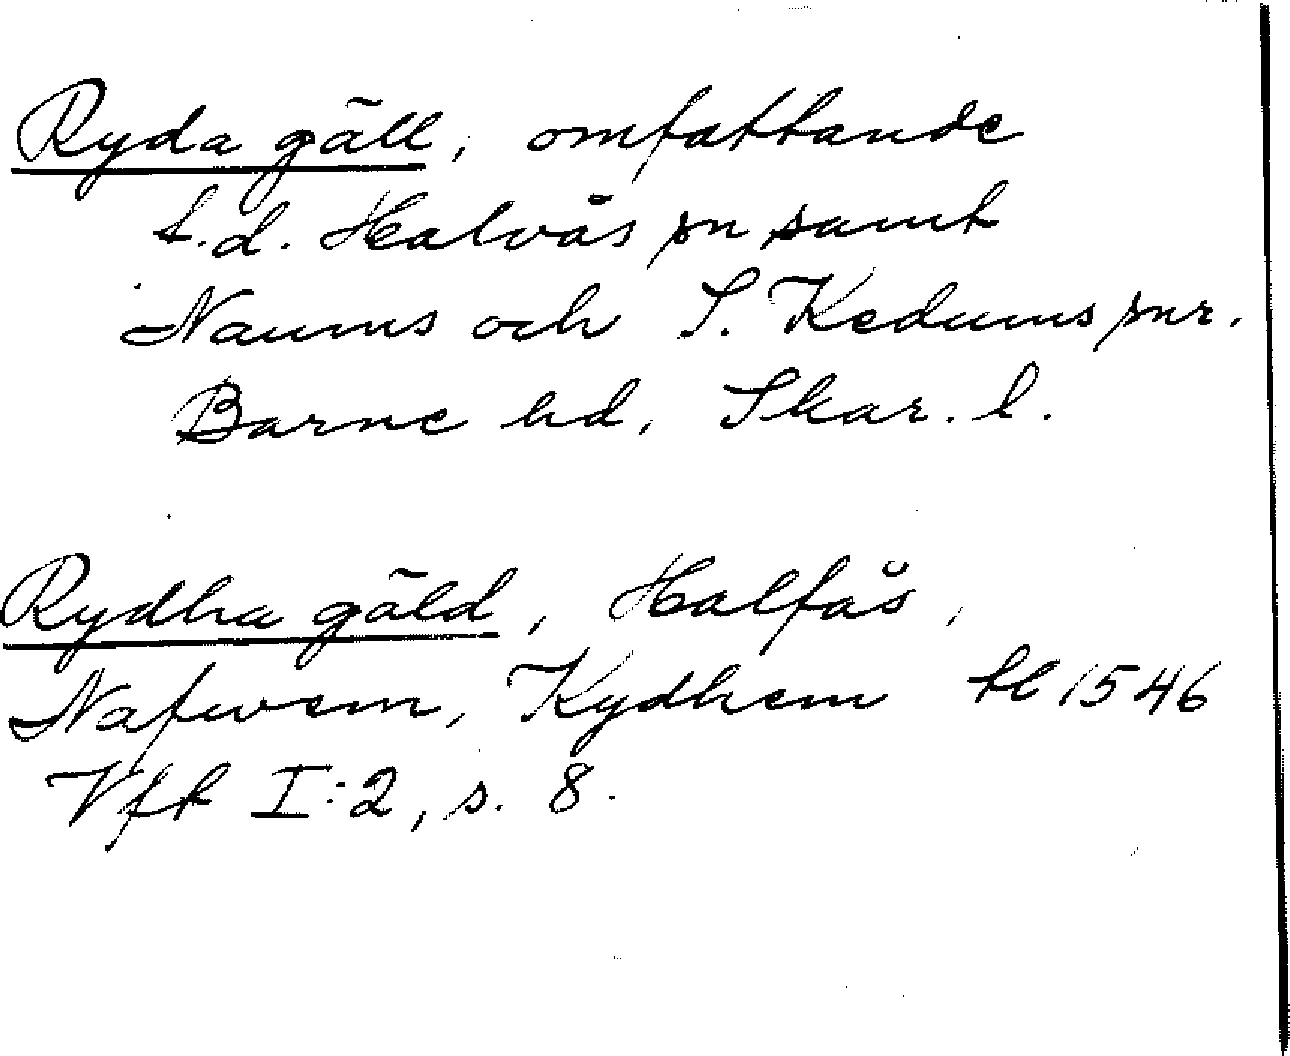 Ryda gäll, omfattande
t.d. Halvås sn samt
Naums och S. Kedums snr.
Barne hd, Skar. l.
Rydha gäld, Halfås,
Nafwem, Kydhem tl 1546
Vft I:2, s. 8.